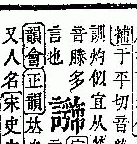 補于平切音
訓灼似宜从
音滕多
言也
諦
韻會正韻𠀤
又人名宋史